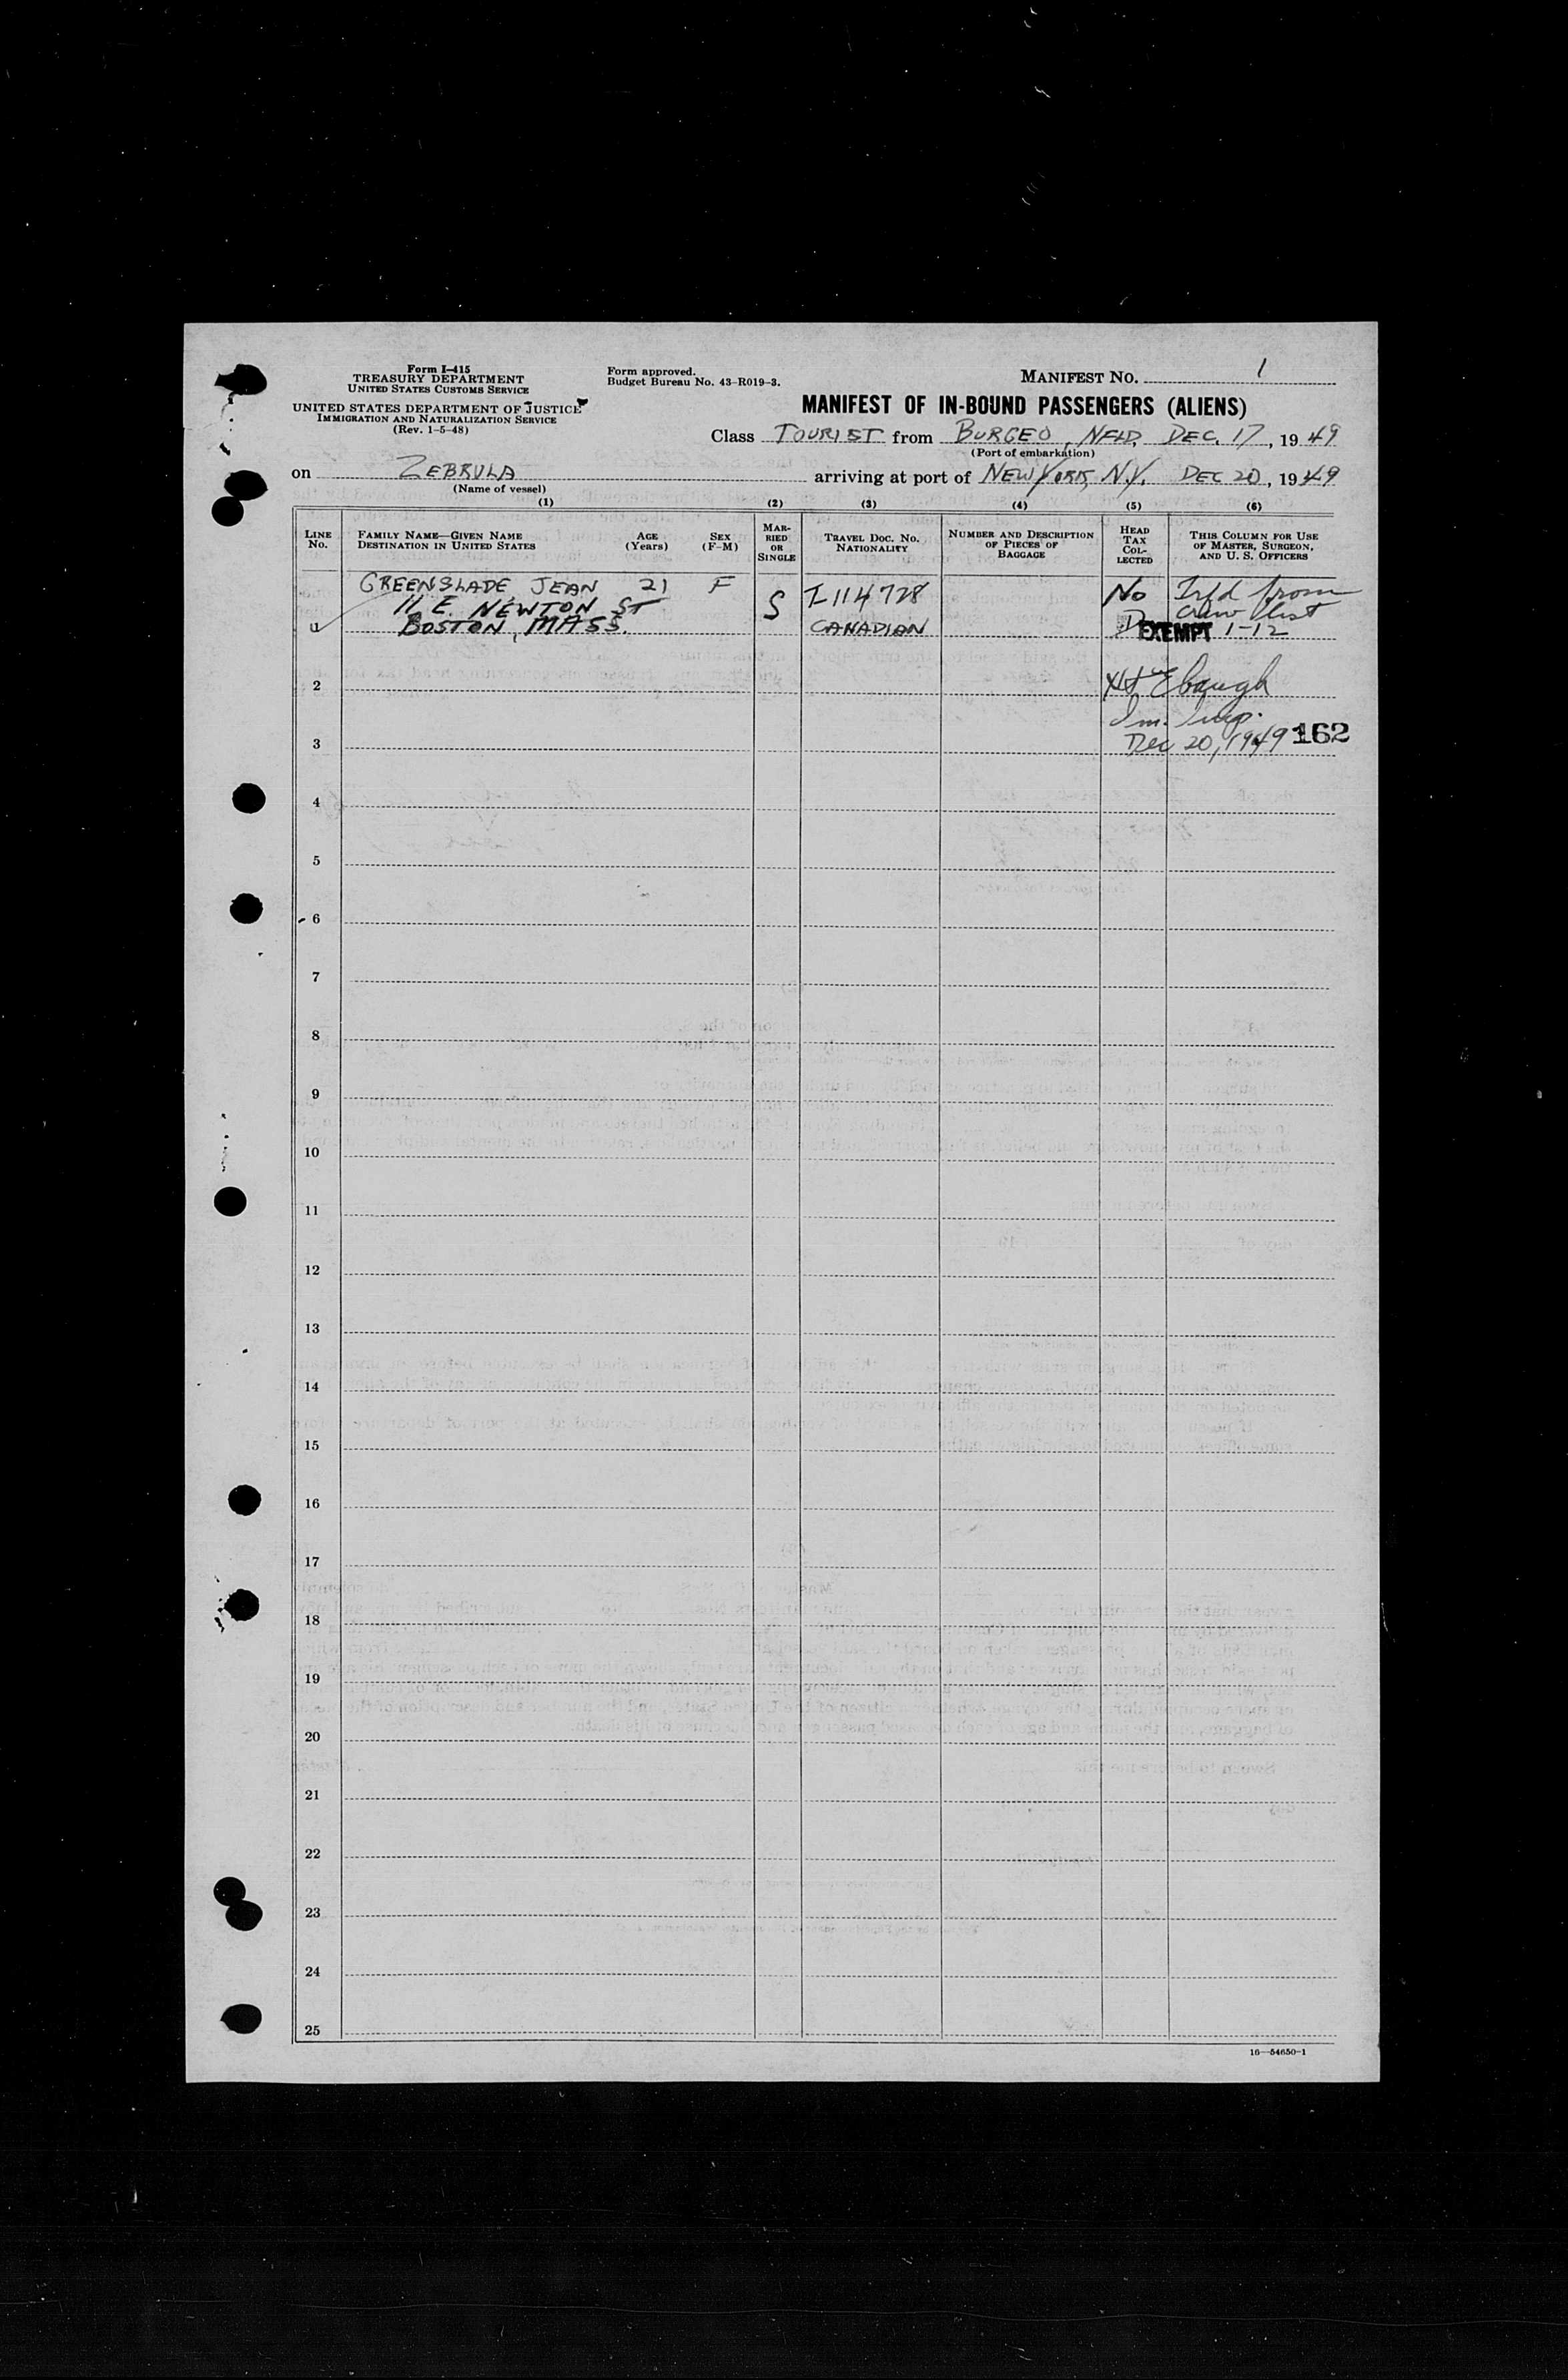 Form I-415
TREASURY DEPARTMENT
UNITED STATES CUSTOMS SERVICE
UNITED STATES DEPARTMENT OF JUSTICE
IMMIGRATION AND NATURALIZATION SERVICE
(Rev. 1-5-48)
Form approved.
Budget Bureau No. 43-R019-3.
MANIFEST NO. 1
MANIFEST OF IN-BOUND PASSENGERS (ALIENS)
Class TOURIST from BURGEO, NFLD, DEC. 17, 1949
(Port of embarkation)
on ZEBRULA arriving at port of NEW YORK, N.Y. DEC 20, 1949
(Name of vessel)
(1) (2) (3) (4) (5) (6)
LINE No. FAMILY NAME—GIVEN NAME DESTINATION IN UNITED STATES AGE (Years) SEX (F-M) MARRIED OR SINGLE TRAVEL DOC. NO. NATIONALITY NUMBER AND DESCRIPTION OF PIECES OF BAGGAGE HEAD TAX COLLECTED THIS COLUMN FOR USE OF MASTER, SURGEON, AND U. S. OFFICERS
GREENSLADE JEAN 21 F S I-114728 No Trfd from
11 E. NEWTON ST crew list
1 BOSTON, MASS. CANADIAN EXEMPT 1-12
2 Ebaugh
Im. Insp.
3 Dec 20, 1949 162
4
5
6
7
8
9
10
11
12
13
14
15
16
17
18
19
20
21
22
23
24
25
16—54650-1